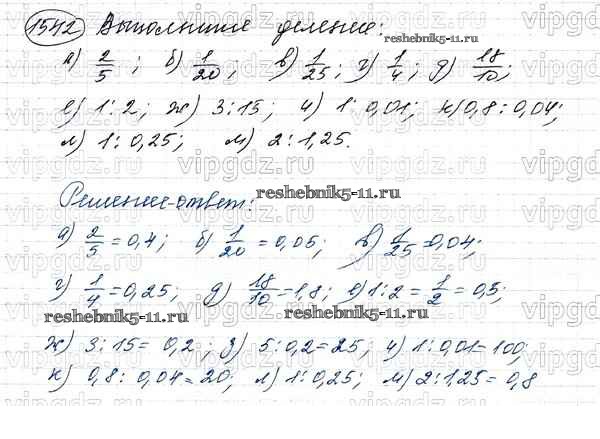 1542 Выполните деление:
reshebnik5-11.ru
а) 2/5 ; б) 1/20 ; в) 1/25 ; г) 1/4 ; д) 18/10 ;
е) 1 : 2 ; ж) 3 : 15 ; и) 1 : 0,01 ; к) 0,8 : 0,04 ;
л) 1 : 0,25 ; м) 2 : 1,25.
Решение-ответ:
reshebnik5-11.ru
а) 2/5 = 0,4 ; б) 1/20 = 0,05 ; в) 1/25 0,04 ;
г) 1/4 = 0,25 ; д) 18/10 = 1,8 ; е) 1 : 2 = 1/2 = 0,5 ;
reshebnik5-11.ru
reshebnik5-11.ru
ж) 3 : 15 = 0,2 ; з) 5 : 0,2 = 25 ; и) 1 : 0,01 = 100 ;
к) 0,8 : 0,04 = 20 ; л) 1 : 0,25 ; м) 2 : 1,25 = 0,8
vipgdz.ru